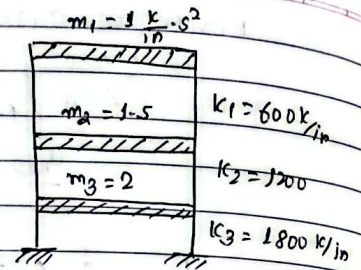 m₁ = 1 k/in · s²
m₂ = 1.5
K₁ = 600 k/in
m₃ = 2
K₂ = 1200
K₃ = 1800 K/in